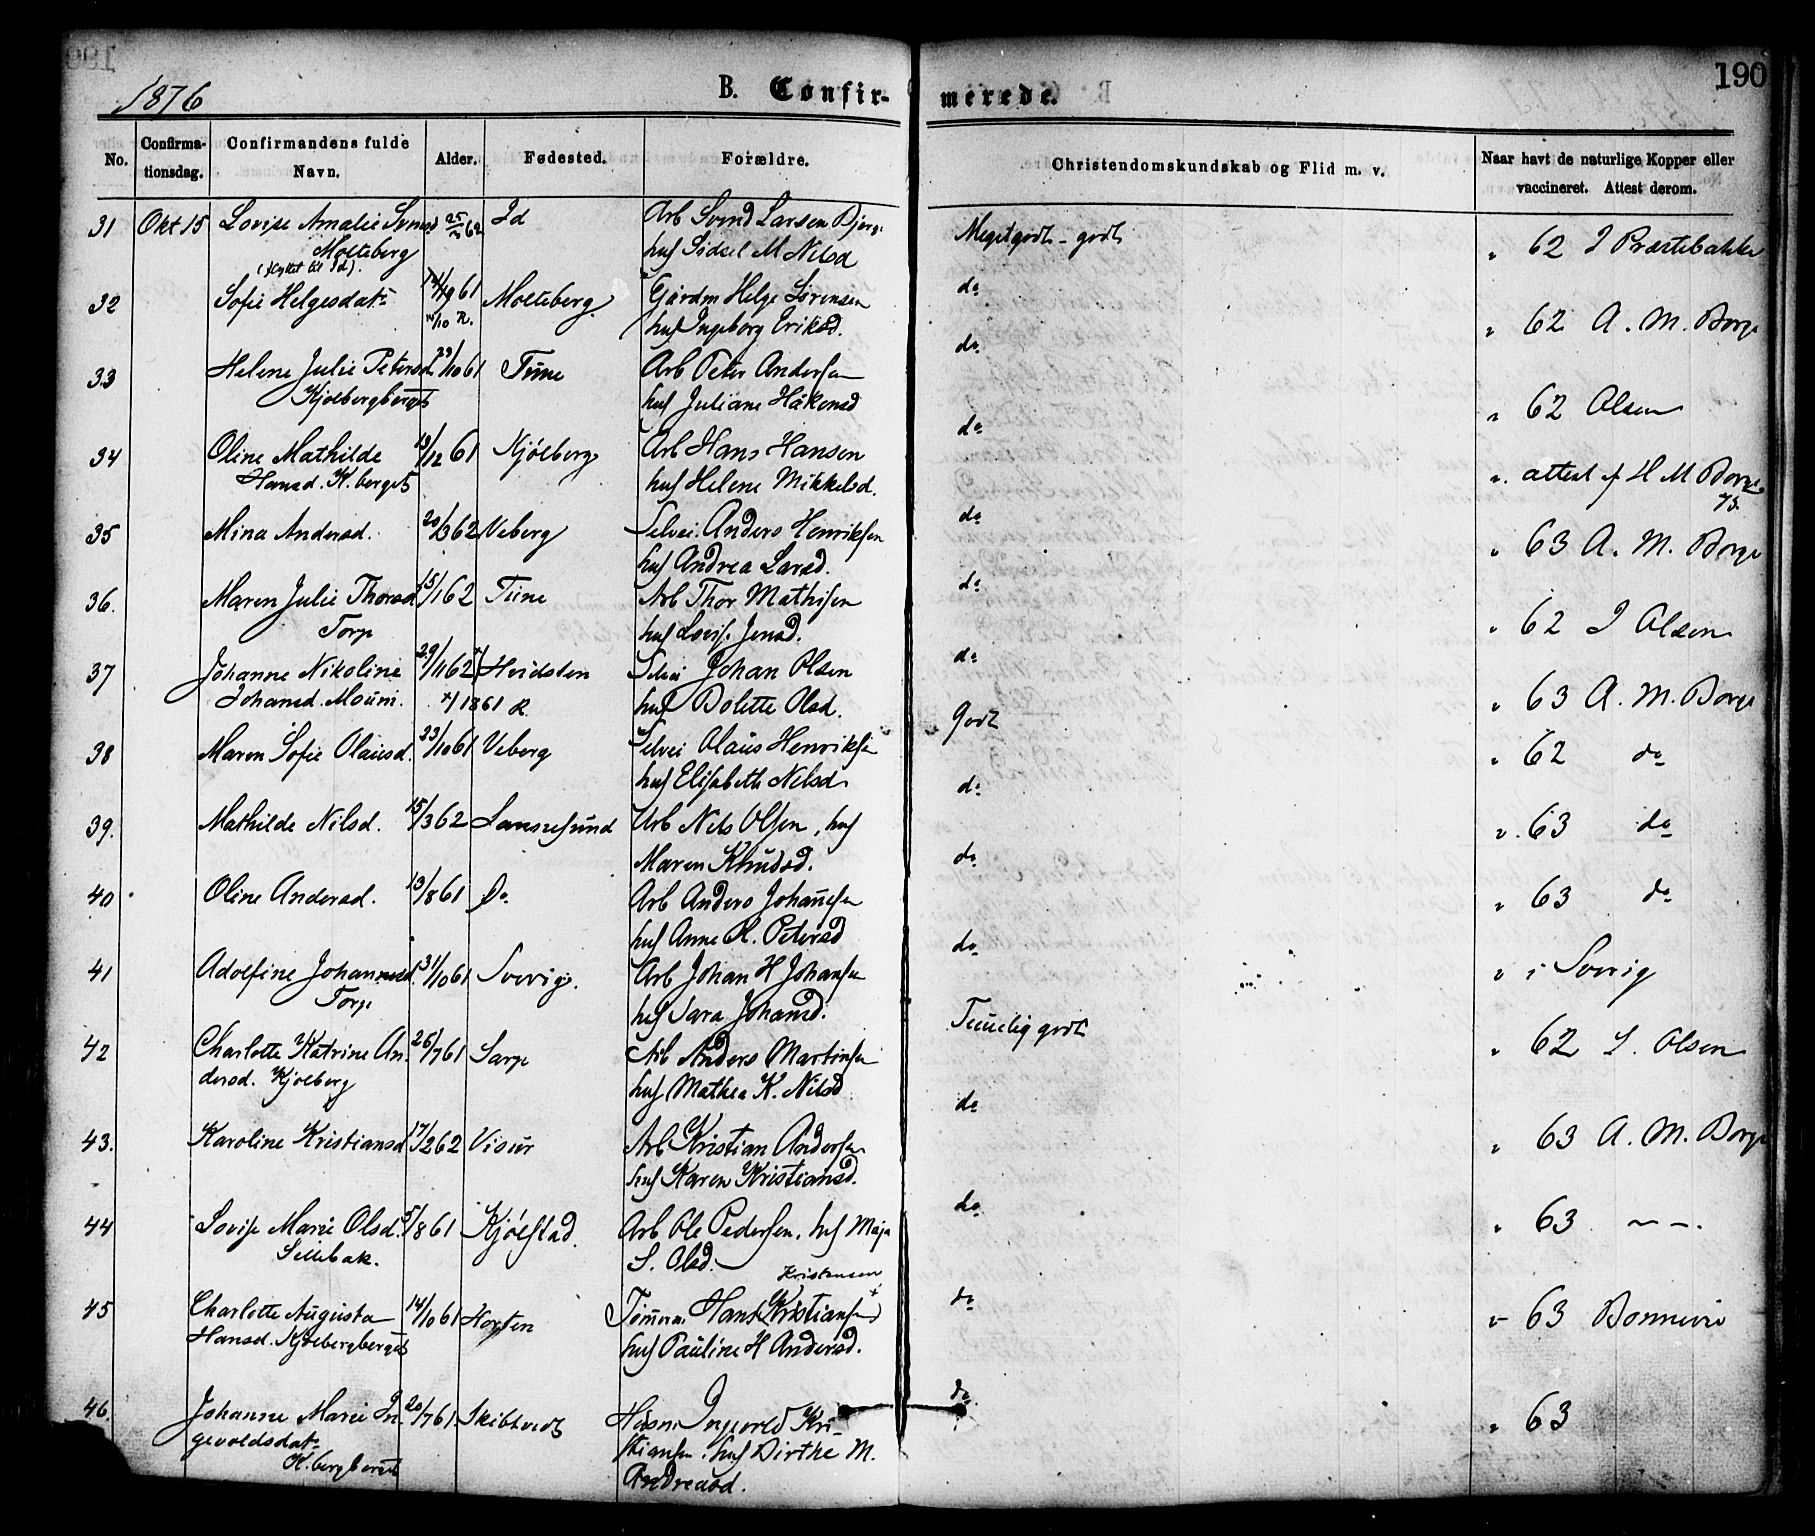 1876
B. Confir-
merede.
190
No.
Confirma-
tionsdag.
Confirmandens fulde
Navn.
Alder.
Fødested.
Forældre.
Christendomskundskab og Flid m. v.
Naar havt de naturlige Kopper eller
vaccineret. Attest derom.
31 Okt 15 Lovise Amalie Svends 62 Id Arb Svend Larsen Bjørg
Molteberg huf Sidsel M Nilsd
(flyttet til Id).
Meget godt - godt
" 62 I Præstebakke
32 Sofie Helgesdatr 61 Molteberg Gårdm Helge Sørensen
14/10 R. huf Ingeborg Eriksd.
do
" 62 A. M. Borge
33 Helene Julie Petersd 29/10 61 Tune Arb Peter Andersen
Kjølbergberget huf Juliane Håkensd
do
" 62 Olsen
34 Oline Mathilde 19/12 61 Kjølberg Arb Hans Hansen
Hansd. K.berget huf Helene Mikkelsd.
do
" attest f H M Borge
75.
35 Mina Andersd. 20/3 62 Veberg Selvei. Anders Henriksen
huf Andrea Larsd.
do
" 63 A. M. Borge
36. Maren Julie Thorsd 15/1 62 Tune Arb Thor Mathisen
Torp huf Lovise Jensd.
do
" 62 I Olsen
37 Johanne Nikoline 29/11 62 Hvidsten Selvei Johan Olsen
Johansd. Moum. 1861 R. huf Bolette Olsd.
do
" 63 A. M. Borge
38 Maren Sofie Olausd. 23/10 61 Veberg Selvei Olaus Henriksen
huf Elisabeth Nilsd
Godt
" 62 do
39. Mathilde Nilsd. 15/3 62 Lannesund Arb Nils Olsen, huf
Maren Knudsd.
do
" 63 do
40 Oline Andersd. 13/8 61 Do Arb Anders Johansen
huf Anne K. Petersd
do
" 63 do
41 Adolfine Johannesd. 31/10 61 Sverig. Arb Johan H Johansen
Torp huf Sara Johansd.
do
" i Sverig
42 Charlotte Katrine An- 26/7 61 Sarp Arb Anders Martinsen
dersd. Kjølberg huf Mathea K. Nilsd
Temmelig godt
" 62 I. Olsen
43. Karoline Kristiansd 17/2 62 Visur Arb Kristian Andersen
huf Karen Kristiansd.
do
" 63 A. M. Borge
44 Lovise Marie Olsd. 5/8 61 Kjølstad. Arb Ole Pedersen, huf Maja
Sellebak. S. Olsd.
do
" 63 - - -.
Kristensen
45 Charlotte Augusta 14/10 61 Horten Tømm. Hans Kristiansen
Hansd. Kjølbergberget huf Pauline H Andersd.
do
" 63 Bonnevie
46. Johanne Marie In- 20/7 61 Skibtvedt Husm Ingevold Kri-
gevoldsdatr stiansen, huf Birthe M.
K.bergberget Andreasd.
do
" 63